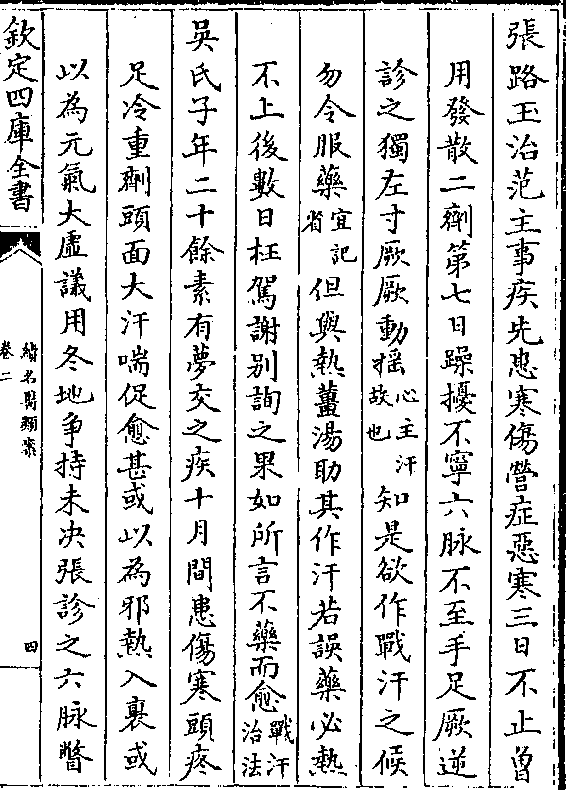 張路玉治范主事疾先患寒傷營症惡寒三日不止曾
用發散二劑第七日躁擾不寧六脉不至手足厥逆
診之獨左寸厥厥動摇心主汗故也知是欲作戰汗之候
勿令服藥宜記省但與熱薑湯助其作汗若誤藥必熱
不止後數日枉駕謝别詢之果如所言不藥而愈戰汗治法
吳氏子年二十餘素有夢交之疾十月間患傷寒頭疼
足冷重劑頭面大汗喘促愈甚或以為邪熱入裏或
以為元氣大虛議用冬地争持未决張診之六脉瞥
欽定四庫全書
續名醫類案
卷二
四